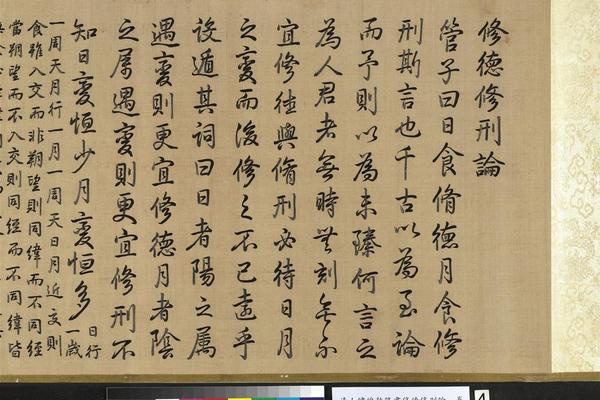 修德修刑論
管子曰日食脩德月食修
刑斯言也千古以為至論
而予則以為未臻何言之
為人君者無時無刻無不
宜修德與脩刑必待日月
之變而後修之不已遠乎
設遁其詞曰日者陽之屬
遇變則更宜修德月者陰
之屬遇變則更宜修刑不
知日變恒少月變恒多日行
一歲
一周天月行一月一周天日月近交則
食雖入交而非朔望則同緯而不同經
當朔望而不入交則同經而不同緯皆
4